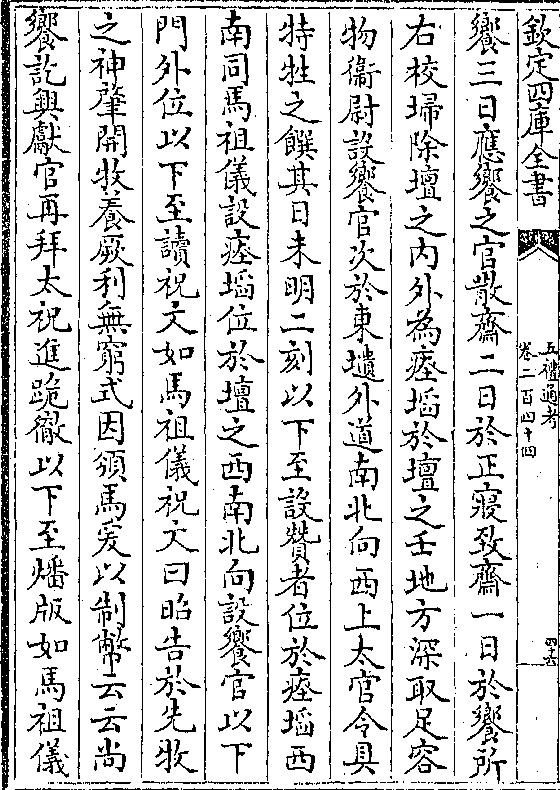 欽定四庫全書
五禮通考
卷二百四十四
饗三日應饗之官散齋二日於正寢致齋一日於饗所
右校埽除壇之内外為瘞埳於壇之壬地方深取足容
物衛尉設饗官次於東壝外道南北向西上太官令具
特牲之饌其日未明二刻以下至設贊者位於瘞埳西
南同馬祖儀設瘞埳位於壇之西南北向設饗官以下
門外位以下至讀祝文如馬祖儀祝文曰昭告於先牧
之神肇開牧養厥利無窮式因頒馬爰以制幣云云尚
饗訖興獻官再拜太祝進跪徹以下至燔版如馬祖儀